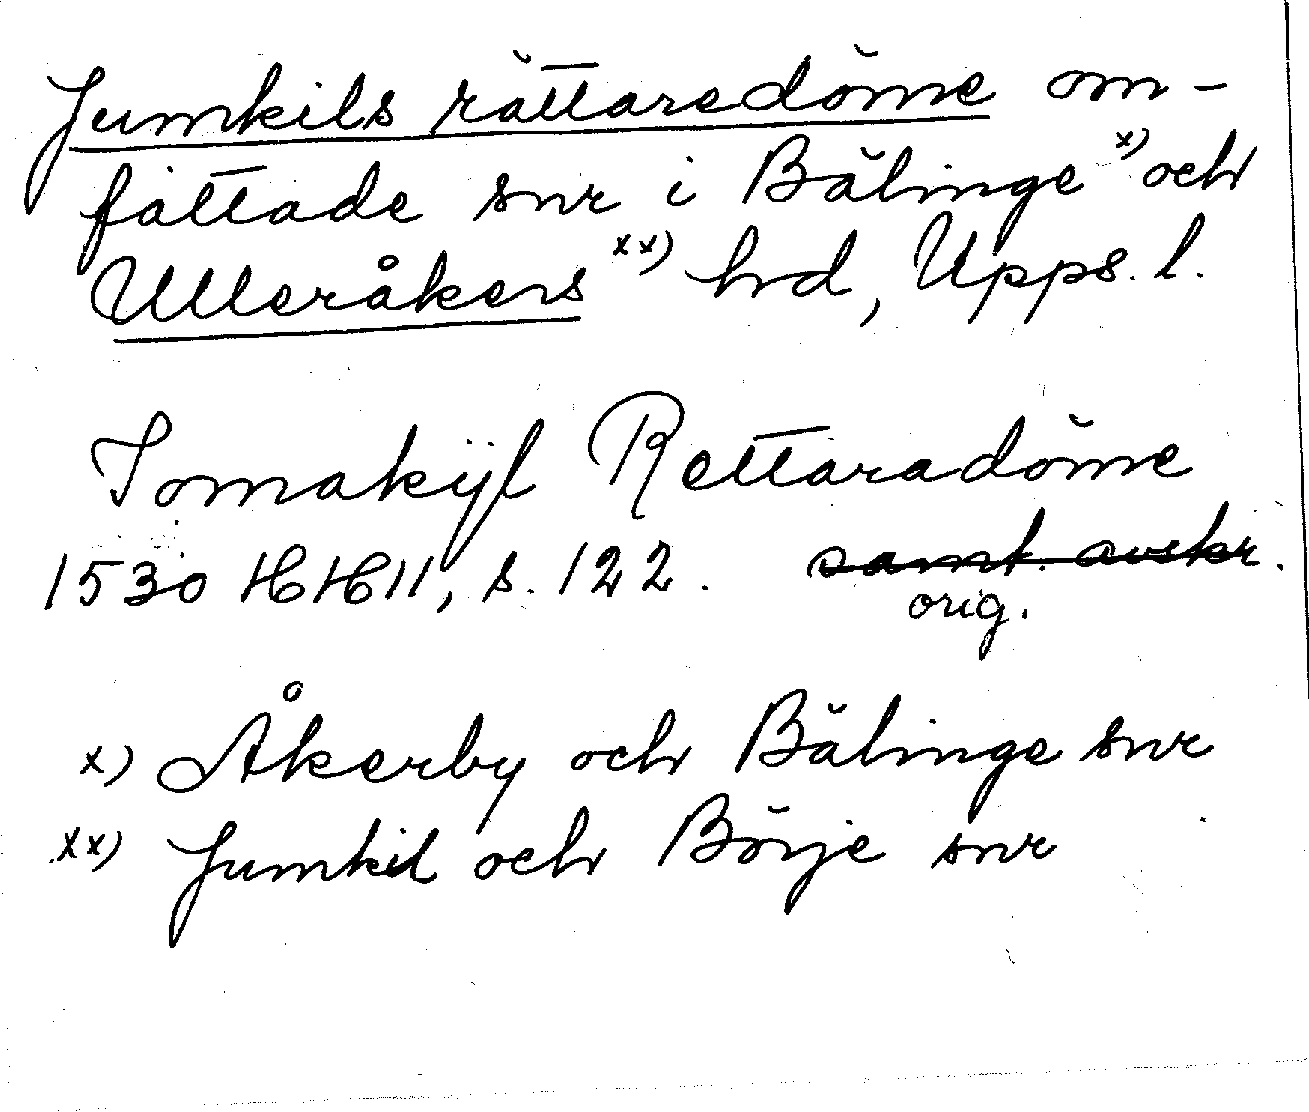 Jumkils rättaredöme om-
fattade snr i Bälinge x) och
Ulleråkers xx) hd, Upps. l.
Jomakijl Rettaradöme
1530 HH11, s. 122. samt. avskr.
orig.
x) Åkerby och Bälinge snr
xx) Jumkil och Börje snr